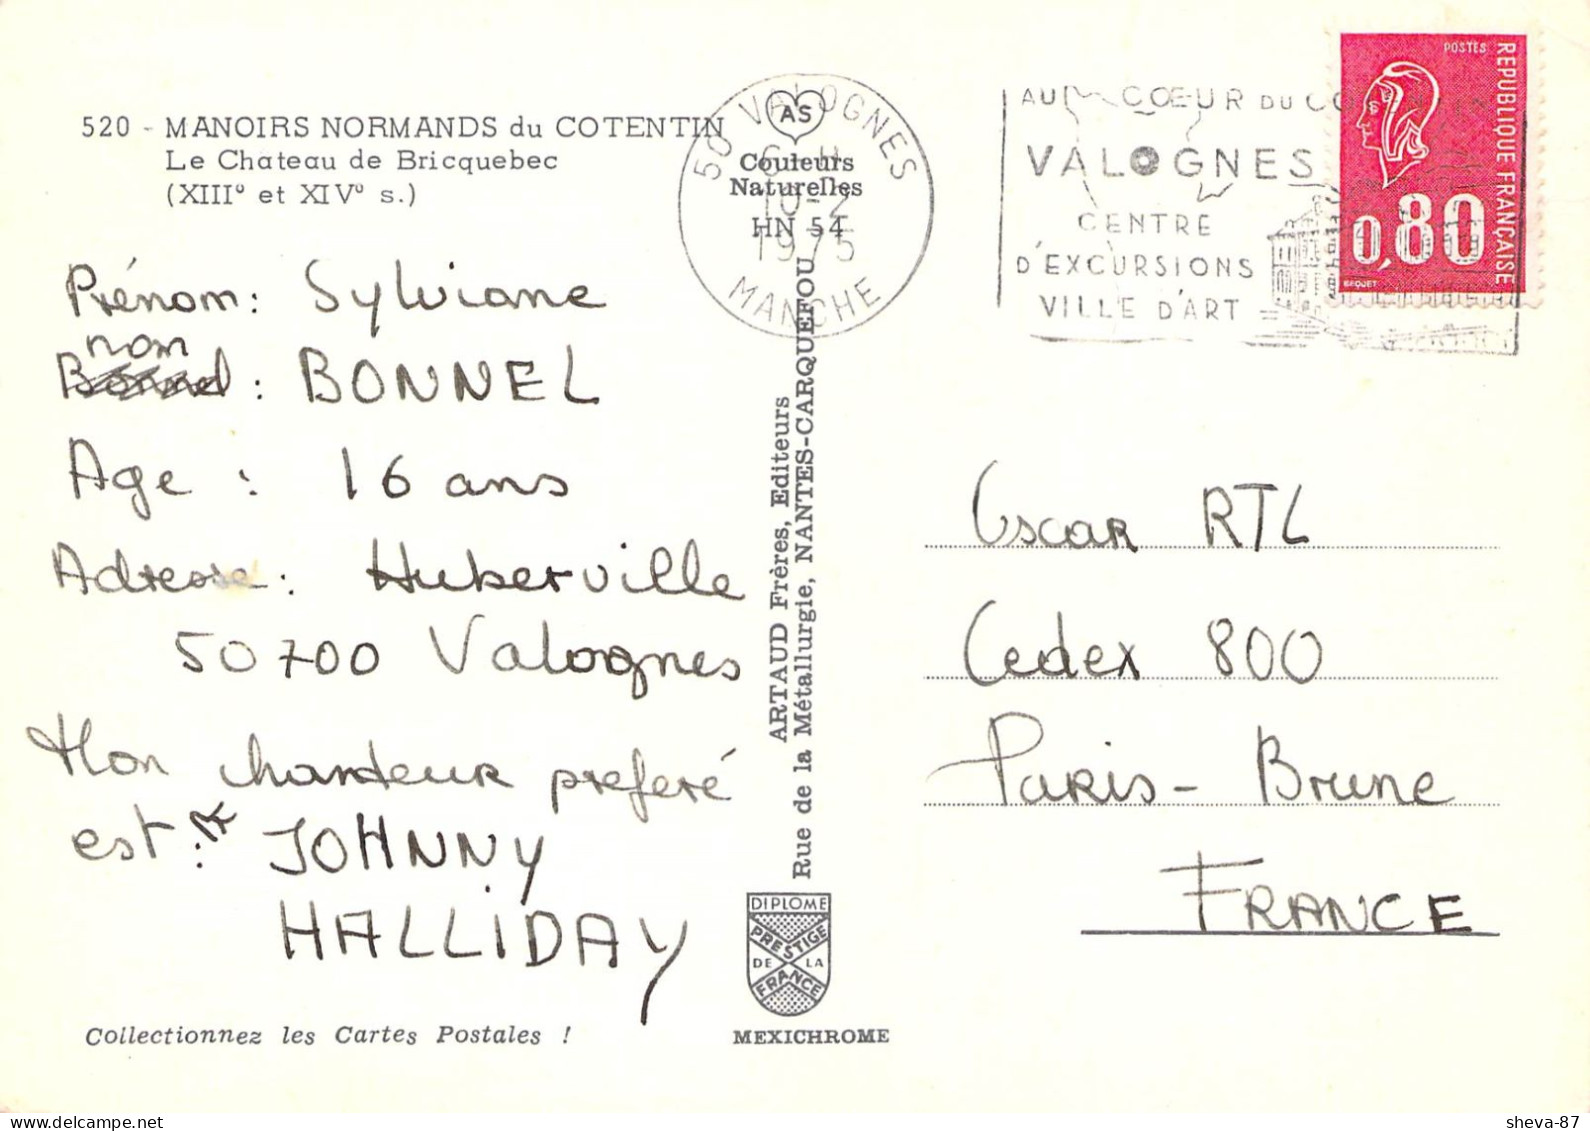 520 - MANOIRS NORMANDS du COTENTIN
Le Château de Bricquebec
(XIIIº et XIVº s.)
Prénom : Sylviane
nom
Bonnel : BONNEL
Age : 16 ans
Adresse : Huberville
50700 Valognes
Mon chanteur preferé
est : JOHNNY
HALLIDAY
Collectionnez les Cartes Postales !
AS
Couleurs
Naturelles
HN 54
50 VALOGNES
10-2
1975
MANCHE
ARTAUD Frères, Editeurs
Rue de la Métallurgie, NANTES-CARQUEFOU
DIPLOME
PRESTIGE
DE LA
FRANCE
MEXICHROME
AU CŒUR DU
VALOGNES
CENTRE
D'EXCURSIONS
VILLE D'ART
POSTES
REPUBLIQUE FRANÇAISE
0,80
BEQUET
Oscar RTL
Cedex 800
Paris - Brune
FRANCE
sheva-87